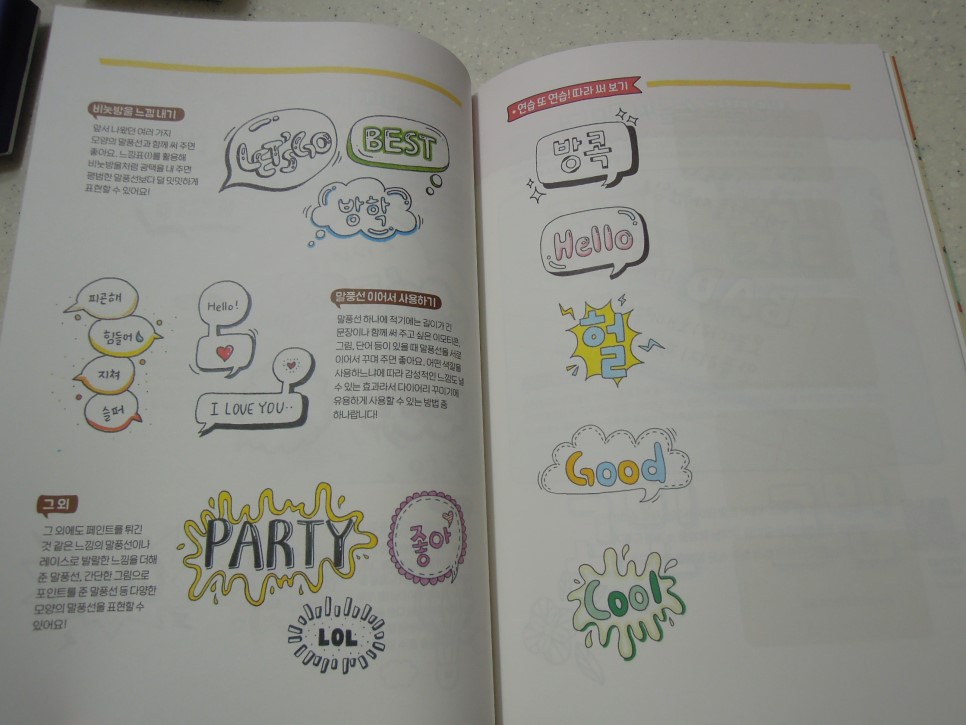 비눗방울 느낌 내기
앞서 나왔던 여러 가지
모양의 말풍선과 함께 써 주면
좋아요. 느낌표(!)를 활용해
비눗방울처럼 광택을 내 주면
평범한 말풍선보다 덜 밋밋하게
표현할 수 있어요!
BEST
방학
피곤해
힘들어
지쳐
슬퍼
Hello!
I LOVE YOU..
말풍선 이어서 사용하기
말풍선 하나에 적기에는 길이가 긴
문장이나 함께 써 주고 싶은 이모티콘,
그림, 단어 등이 있을 때 말풍선을 서로
이어서 꾸며 주면 좋아요. 어떤 색깔을
사용하느냐에 따라 감성적인 느낌도 낼
수 있는 효과라서 다이어리 꾸미기에
유용하게 사용할 수 있는 방법 중
하나랍니다!
그 외
그 외에도 페인트를 튀긴
것 같은 느낌의 말풍선이나
레이스로 발랄한 느낌을 더해
준 말풍선, 간단한 그림으로
포인트를 준 말풍선 등 다양한
모양의 말풍선을 표현할 수
있어요!
PARTY
좋아
LOL
• 연습 또 연습! 따라 써 보기
방콕
Hello
헐
Good
Cool